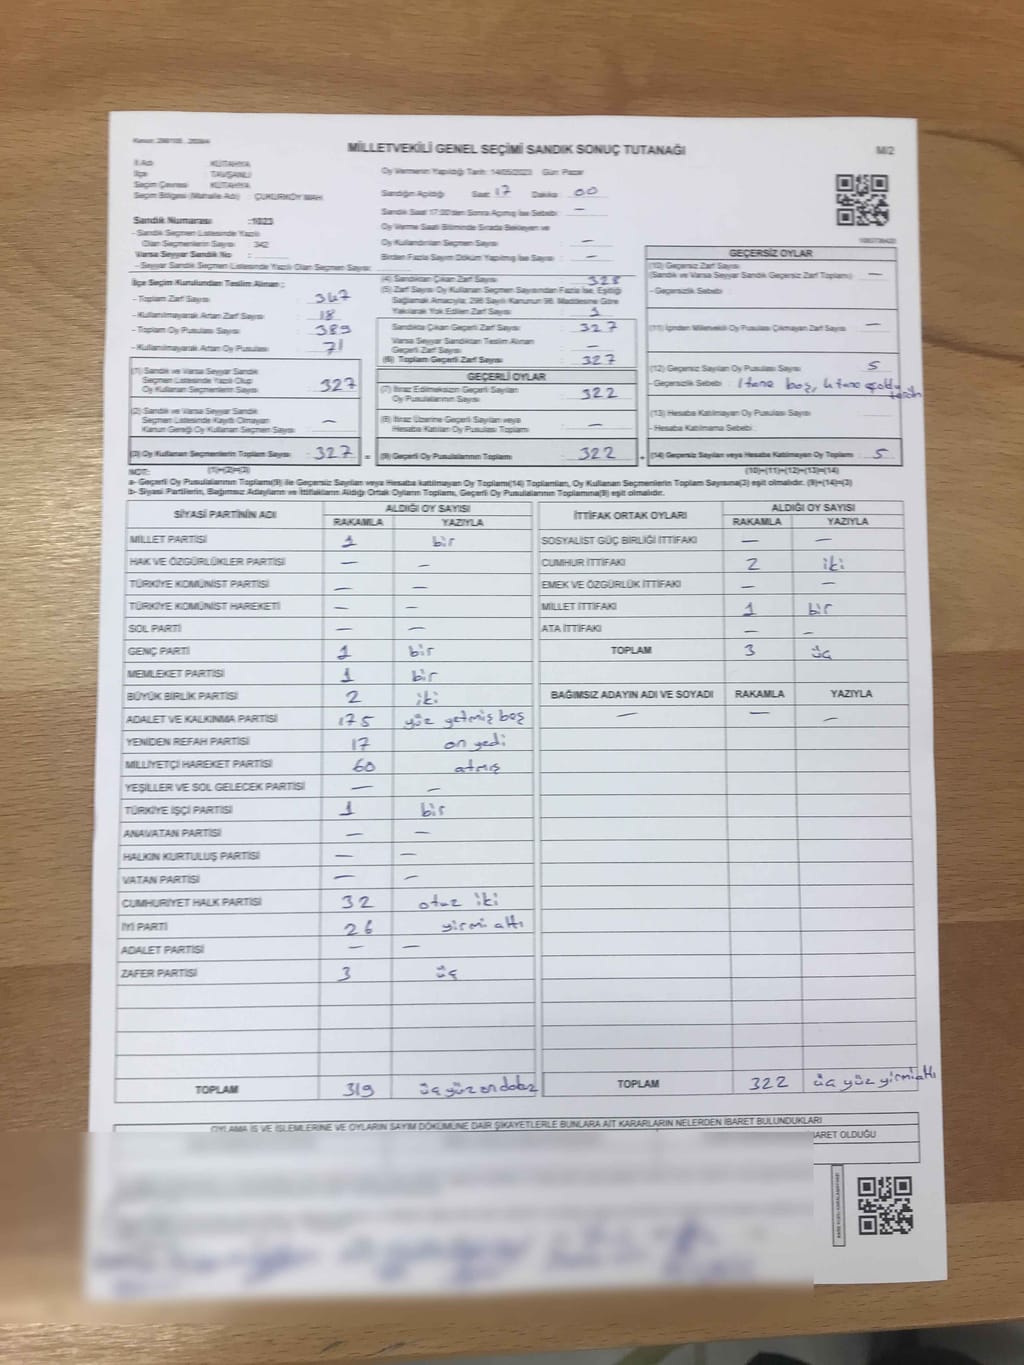 MİLLETVEKİLİ GENEL SEÇİMİ SANDIK SONUÇ TUTANAĞI
M/2
İl Adı : KÜTAHYA
İlçe : TAVŞANLI
Seçim Çevresi : KÜTAHYA
Seçim Bölgesi (Mahalle Adı) : ÇUKURKÖY MAH
Oy Vermenin Yapıldığı Tarih: 14/05/2023 Gün: Pazar
Sandığın Açıldığı Saat: 17 Dakika: 00
Sandık Saat 17:00'den Sonra Açılmış İse Sebebi: —
Oy Verme Saati Bitiminde Sırada Bekleyen ve
Oy Kullandırılan Seçmen Sayısı : —
Birden Fazla Sayım Döküm Yapılmış İse Sayısı : —
Sandık Numarası : 1023
- Sandık Seçmen Listesinde Yazılı
Olan Seçmenlerin Sayısı : 342
Varsa Seyyar Sandık No :
- Seyyar Sandık Seçmen Listesinde Yazılı Olan Seçmen Sayısı:
İlçe Seçim Kurulundan Teslim Alınan ;
- Toplam Zarf Sayısı : 347
- Kullanılmayarak Artan Zarf Sayısı : 18
- Toplam Oy Pusulası Sayısı : 389
- Kullanılmayarak Artan Oy Pusulası : 71
(1) Sandık ve Varsa Seyyar Sandık
Seçmen Listesinde Yazılı Olup
Oy Kullanan Seçmenlerin Sayısı : 327
(2) Sandık ve Varsa Seyyar Sandık
Seçmen Listesinde Kaydı Olmayan
Kanun Gereği Oy Kullanan Seçmen Sayısı : —
(3) Oy Kullanan Seçmenlerin Toplam Sayısı : 327
(4) Sandıktan Çıkan Zarf Sayısı : 328
(5) Zarf Sayısı Oy Kullanan Seçmen Sayısından Fazla İse, Eşitliği
Sağlamak Amacıyla, 298 Sayılı Kanunun 98. Maddesine Göre
Yakılarak Yok Edilen Zarf Sayısı : 1
Sandıkta Çıkan Geçerli Zarf Sayısı : 327
Varsa Seyyar Sandıktan Teslim Alınan
Geçerli Zarf Sayısı : —
(6) Toplam Geçerli Zarf Sayısı : 327
GEÇERLİ OYLAR
(7) İtiraz Edilmeksizin Geçerli Sayılan
Oy Pusulalarının Sayısı : 322
(8) İtiraz Üzerine Geçerli Sayılan veya
Hesaba Katılan Oy Pusulası Toplamı : —
(9) Geçerli Oy Pusulalarının Toplamı : 322
GEÇERSİZ OYLAR
(10) Geçersiz Zarf Sayısı
(Sandık ve Varsa Seyyar Sandık Geçersiz Zarf Toplamı) : —
- Geçersizlik Sebebi :
(11) İçinden Milletvekili Oy Pusulası Çıkmayan Zarf Sayısı : —
(12) Geçersiz Sayılan Oy Pusulası Sayısı : 5
- Geçersizlik Sebebi : 1 tane boş, 4 tane çoklu tercih
(13) Hesaba Katılmayan Oy Pusulası Sayısı :
- Hesaba Katılmama Sebebi :
(14) Geçersiz Sayılan veya Hesaba Katılmayan Oy Toplamı : 5
NOT: (1)+(2)=(3) (10)+(11)+(12)+(13)=(14)
a- Geçerli Oy Pusulalarının Toplamı(9) ile Geçersiz Sayılan veya Hesaba katılmayan Oy Toplamı(14) Toplamları, Oy Kullanan Seçmenlerin Toplam Sayısına(3) eşit olmalıdır. (9)+(14)=(3)
b- Siyasi Partilerin, Bağımsız Adayların ve İttifakların Aldığı Ortak Oyların Toplamı, Geçerli Oy Pusulalarının Toplamına(9) eşit olmalıdır.
SİYASİ PARTİNİN ADI ALDIĞI OY SAYISI
RAKAMLA YAZIYLA
MİLLET PARTİSİ 1 bir
HAK VE ÖZGÜRLÜKLER PARTİSİ — —
TÜRKİYE KOMÜNİST PARTİSİ — —
TÜRKİYE KOMÜNİST HAREKETİ — —
SOL PARTİ — —
GENÇ PARTİ 1 bir
MEMLEKET PARTİSİ 1 bir
BÜYÜK BİRLİK PARTİSİ 2 iki
ADALET VE KALKINMA PARTİSİ 175 yüz yetmiş beş
YENİDEN REFAH PARTİSİ 17 on yedi
MİLLİYETÇİ HAREKET PARTİSİ 60 atmış
YEŞİLLER VE SOL GELECEK PARTİSİ — —
TÜRKİYE İŞÇİ PARTİSİ 1 bir
ANAVATAN PARTİSİ — —
HALKIN KURTULUŞ PARTİSİ — —
VATAN PARTİSİ — —
CUMHURİYET HALK PARTİSİ 32 otuz iki
İYİ PARTİ 26 yirmi altı
ADALET PARTİSİ — —
ZAFER PARTİSİ 3 üç
TOPLAM 319 üç yüz on dokuz
İTTİFAK ORTAK OYLARI ALDIĞI OY SAYISI
RAKAMLA YAZIYLA
SOSYALİST GÜÇ BİRLİĞİ İTTİFAKI — —
CUMHUR İTTİFAKI 2 iki
EMEK VE ÖZGÜRLÜK İTTİFAKI — —
MİLLET İTTİFAKI 1 bir
ATA İTTİFAKI — —
TOPLAM 3 üç
BAĞIMSIZ ADAYIN ADI VE SOYADI RAKAMLA YAZIYLA
— — —
TOPLAM 322 üç yüz yirmi altı
OYLAMA İŞ VE İŞLEMLERİNE VE OYLARIN SAYIM DÖKÜMÜNE DAİR ŞİKAYETLERLE BUNLARA AİT KARARLARIN NELERDEN İBARET BULUNDUKLARI
İBARET OLDUĞU